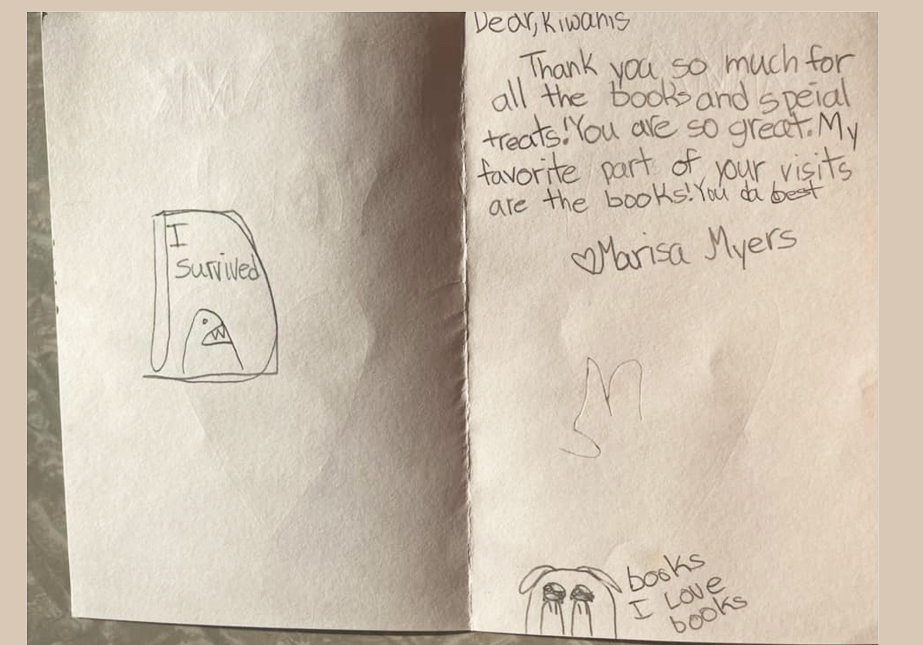 I
survived
Dear, Kiwanis
Thank you so much for
all the books and speial
treats! You are so great. My
favorite part of your visits
are the books! You da best
♡Marisa Myers
M
books
I Love
books